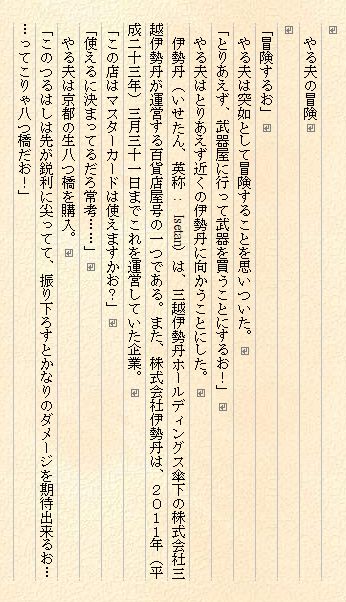 やる夫の冒険
「冒険するお」
やる夫は突如として冒険することを思いついた。
「とりあえず、武器屋に行って武器を買うことにするお！」
やる夫はとりあえず近くの伊勢丹に向かうことにした。
伊勢丹（いせたん、英称：Isetan）は、三越伊勢丹ホールディングス傘下の株式会社三
越伊勢丹が運営する百貨店屋号の一つである。また、株式会社伊勢丹は、２０１１年（平
成二十三年）三月三十一日までこれを運営していた企業。
「この店はマスターカードは使えますかお？」
「使えるに決まってるだろ常考……」
やる夫は京都の生八つ橋を購入。
「このつるはしは先が鋭利に尖ってて、振り下ろすとかなりのダメージを期待出来るお…
…ってこりゃ八つ橋だお！」